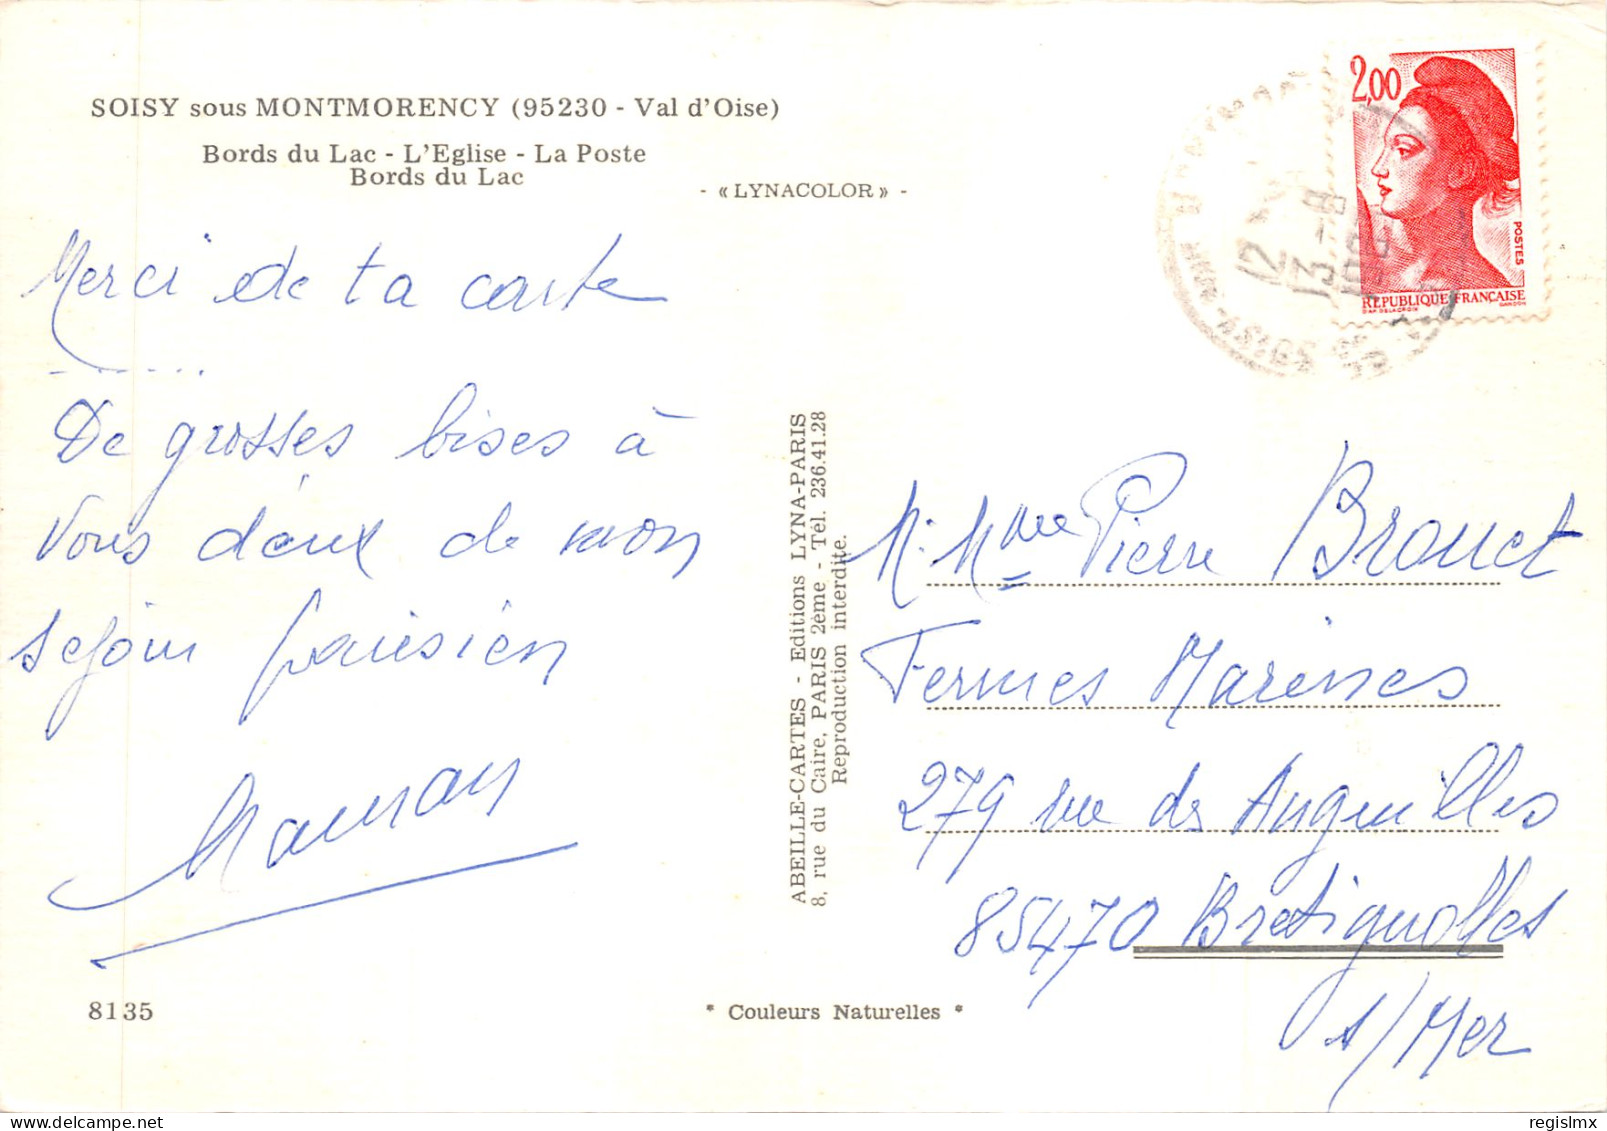 SOISY sous MONTMORENCY (95230 - Val d'Oise)
Bords du Lac - L'Eglise - La Poste
Bords du Lac
- « LYNACOLOR » -
Merci de ta carte
.......
De grosses bises à
Vous deux de mon
séjour parisien
Maman
8135
ABEILLE-CARTES - Editions LYNA-PARIS
8, rue du Caire, PARIS 2ème - Tél. 236.41.28
Reproduction interdite.
* Couleurs Naturelles *
2,00
POSTES
REPUBLIQUE FRANÇAISE
D'AP. DELACROIX GANDON
12
13 - 8
M. Mme Pierre Brouet
Fermes Marines
279 rue des Anguilles
85470 Bretignolles
s/Mer
regislmx